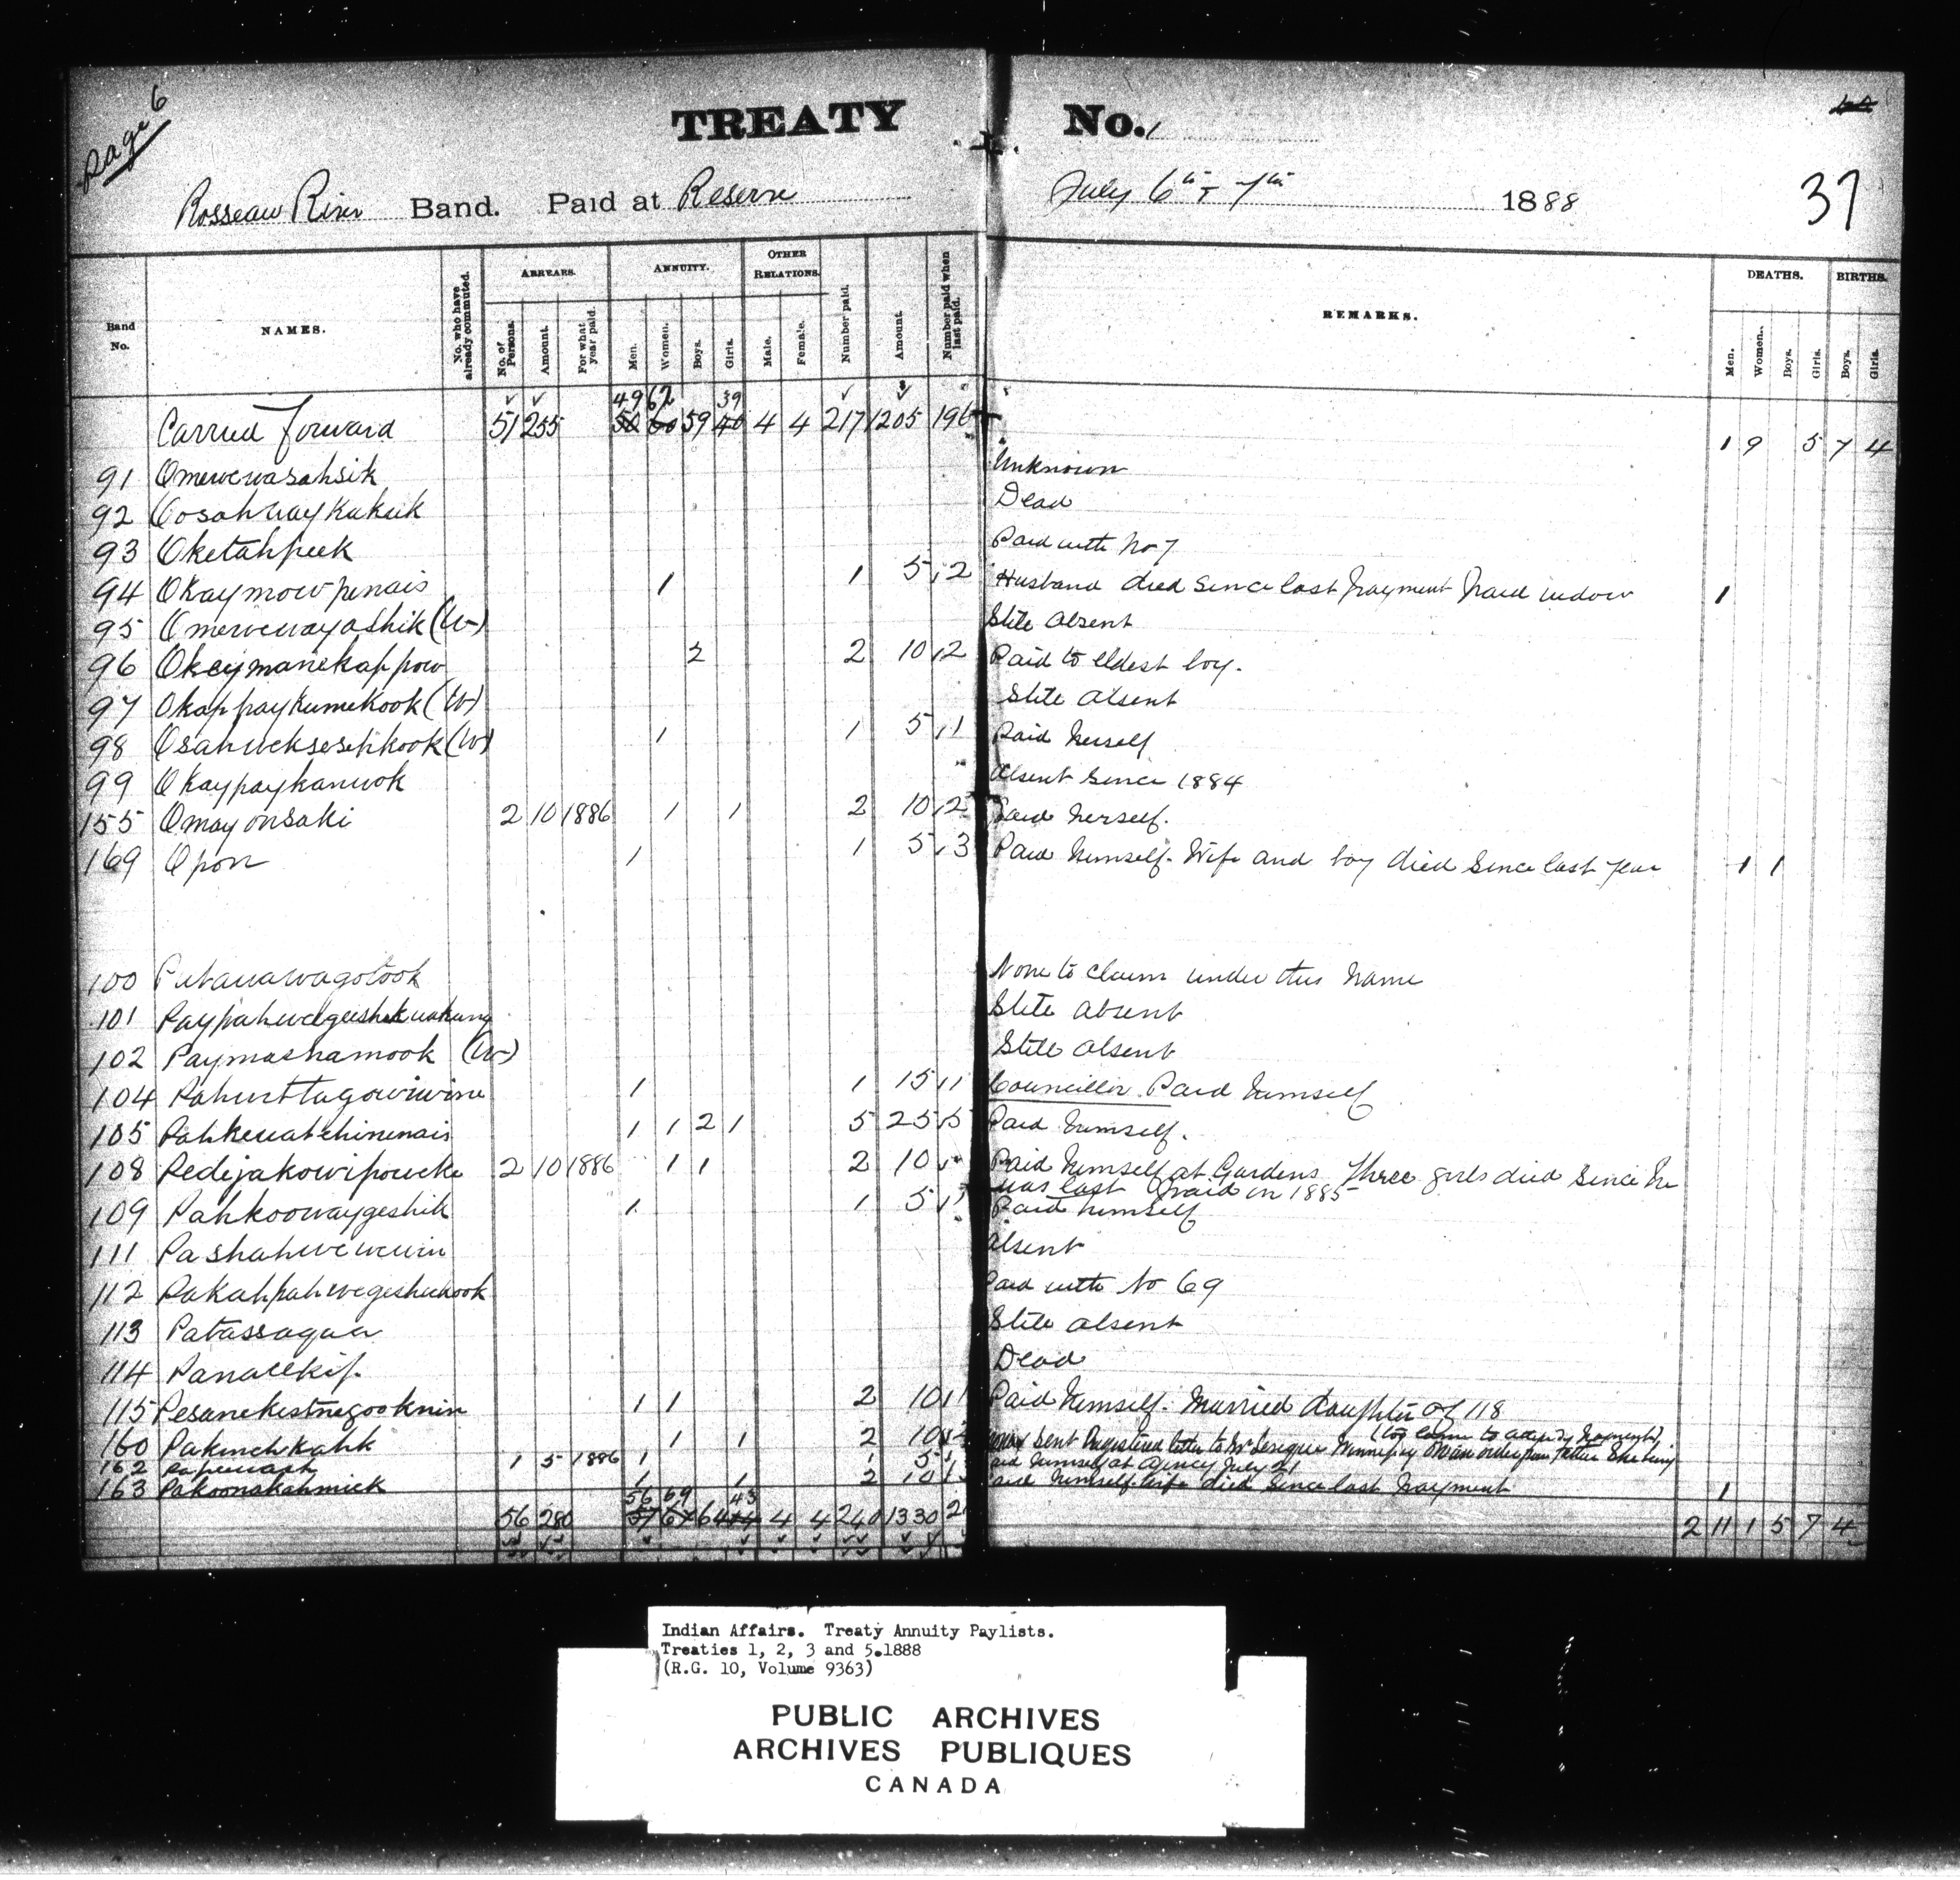 Page 6
TREATY No. 1
Rosseau River Band. Paid at Reserve July 6th & 7th 1888 37
Band No. NAMES. No. who have already commuted. ARREARS. No. of Persons. Amount. For what year paid. ANNUITY. Men. Women. Boys. Girls. OTHER RELATIONS. Male. Female. Number paid. Amount. Number paid when last paid. REMARKS. DEATHS. Men. Women. Boys. Girls. BIRTHS. Boys. Girls.
49 62 39
Carried Forward 51 255 50 60 59 40 4 4 217 1205 196 1 9 5 7 4
91 Omewewasahsik Unknown
92 Oosahwaykukeek Dead
93 Oketahpeek Paid with No 7
94 Okaymowpenais 1 1 5 2 Husband died since last payment paid widow 1
95 Omewewayashik (W) Still absent
96 Okaymanekappow 2 2 10 2 Paid to eldest boy.
97 Okappaykumekook (W) Still absent
98 Osahwcksesehkook (W) 1 1 5 1 Paid herself
99 Okaypaykanwok Absent since 1884
155 Omayonsaki 2 10 1886 1 1 2 10 2 Paid herself.
169 Opon 1 1 5 3 Paid himself. Wife and boy died since last year 1 1
100 None to claim under this name
101 Still absent
102 Paymashamook (W) Still absent
104 1 1 15 1 Councillor. Paid himself
105 Pahkewatchinenais 1 1 2 1 5 25 5 Paid himself.
108 Pedijakowipowcke 2 10 1886 1 1 2 10 Paid himself at Gardens. Three girls died since he
was last paid in 1885
109 Pahkoowaygeshik 1 1 5 1 Paid himself
111 Pashahwewewin Absent
112 Pakahpahwegeshickook Paid with No 69
113 Patassaqua Still absent
114 Panacekip. Dead
115 Pesanekestnegooknin 1 1 2 10 1 Paid himself. Married daughter of 118
160 Pakinchkahk 1 1 2 10 2 Sent Registered letter to Mr Winnipeg
162 Papewash 1 5 1886 1 1 5 1 Paid himself at Agency July 21
163 Pakoonakahmick 1 1 2 10 3 Paid himself. Wife died since last payment 1
56 69 43
56 280 57 67 64 44 4 4 240 1330 2 11 1 5 7 4
Indian Affairs. Treaty Annuity Paylists.
Treaties 1, 2, 3 and 5.1888
(R.G. 10, Volume 9363)
PUBLIC ARCHIVES
ARCHIVES PUBLIQUES
CANADA